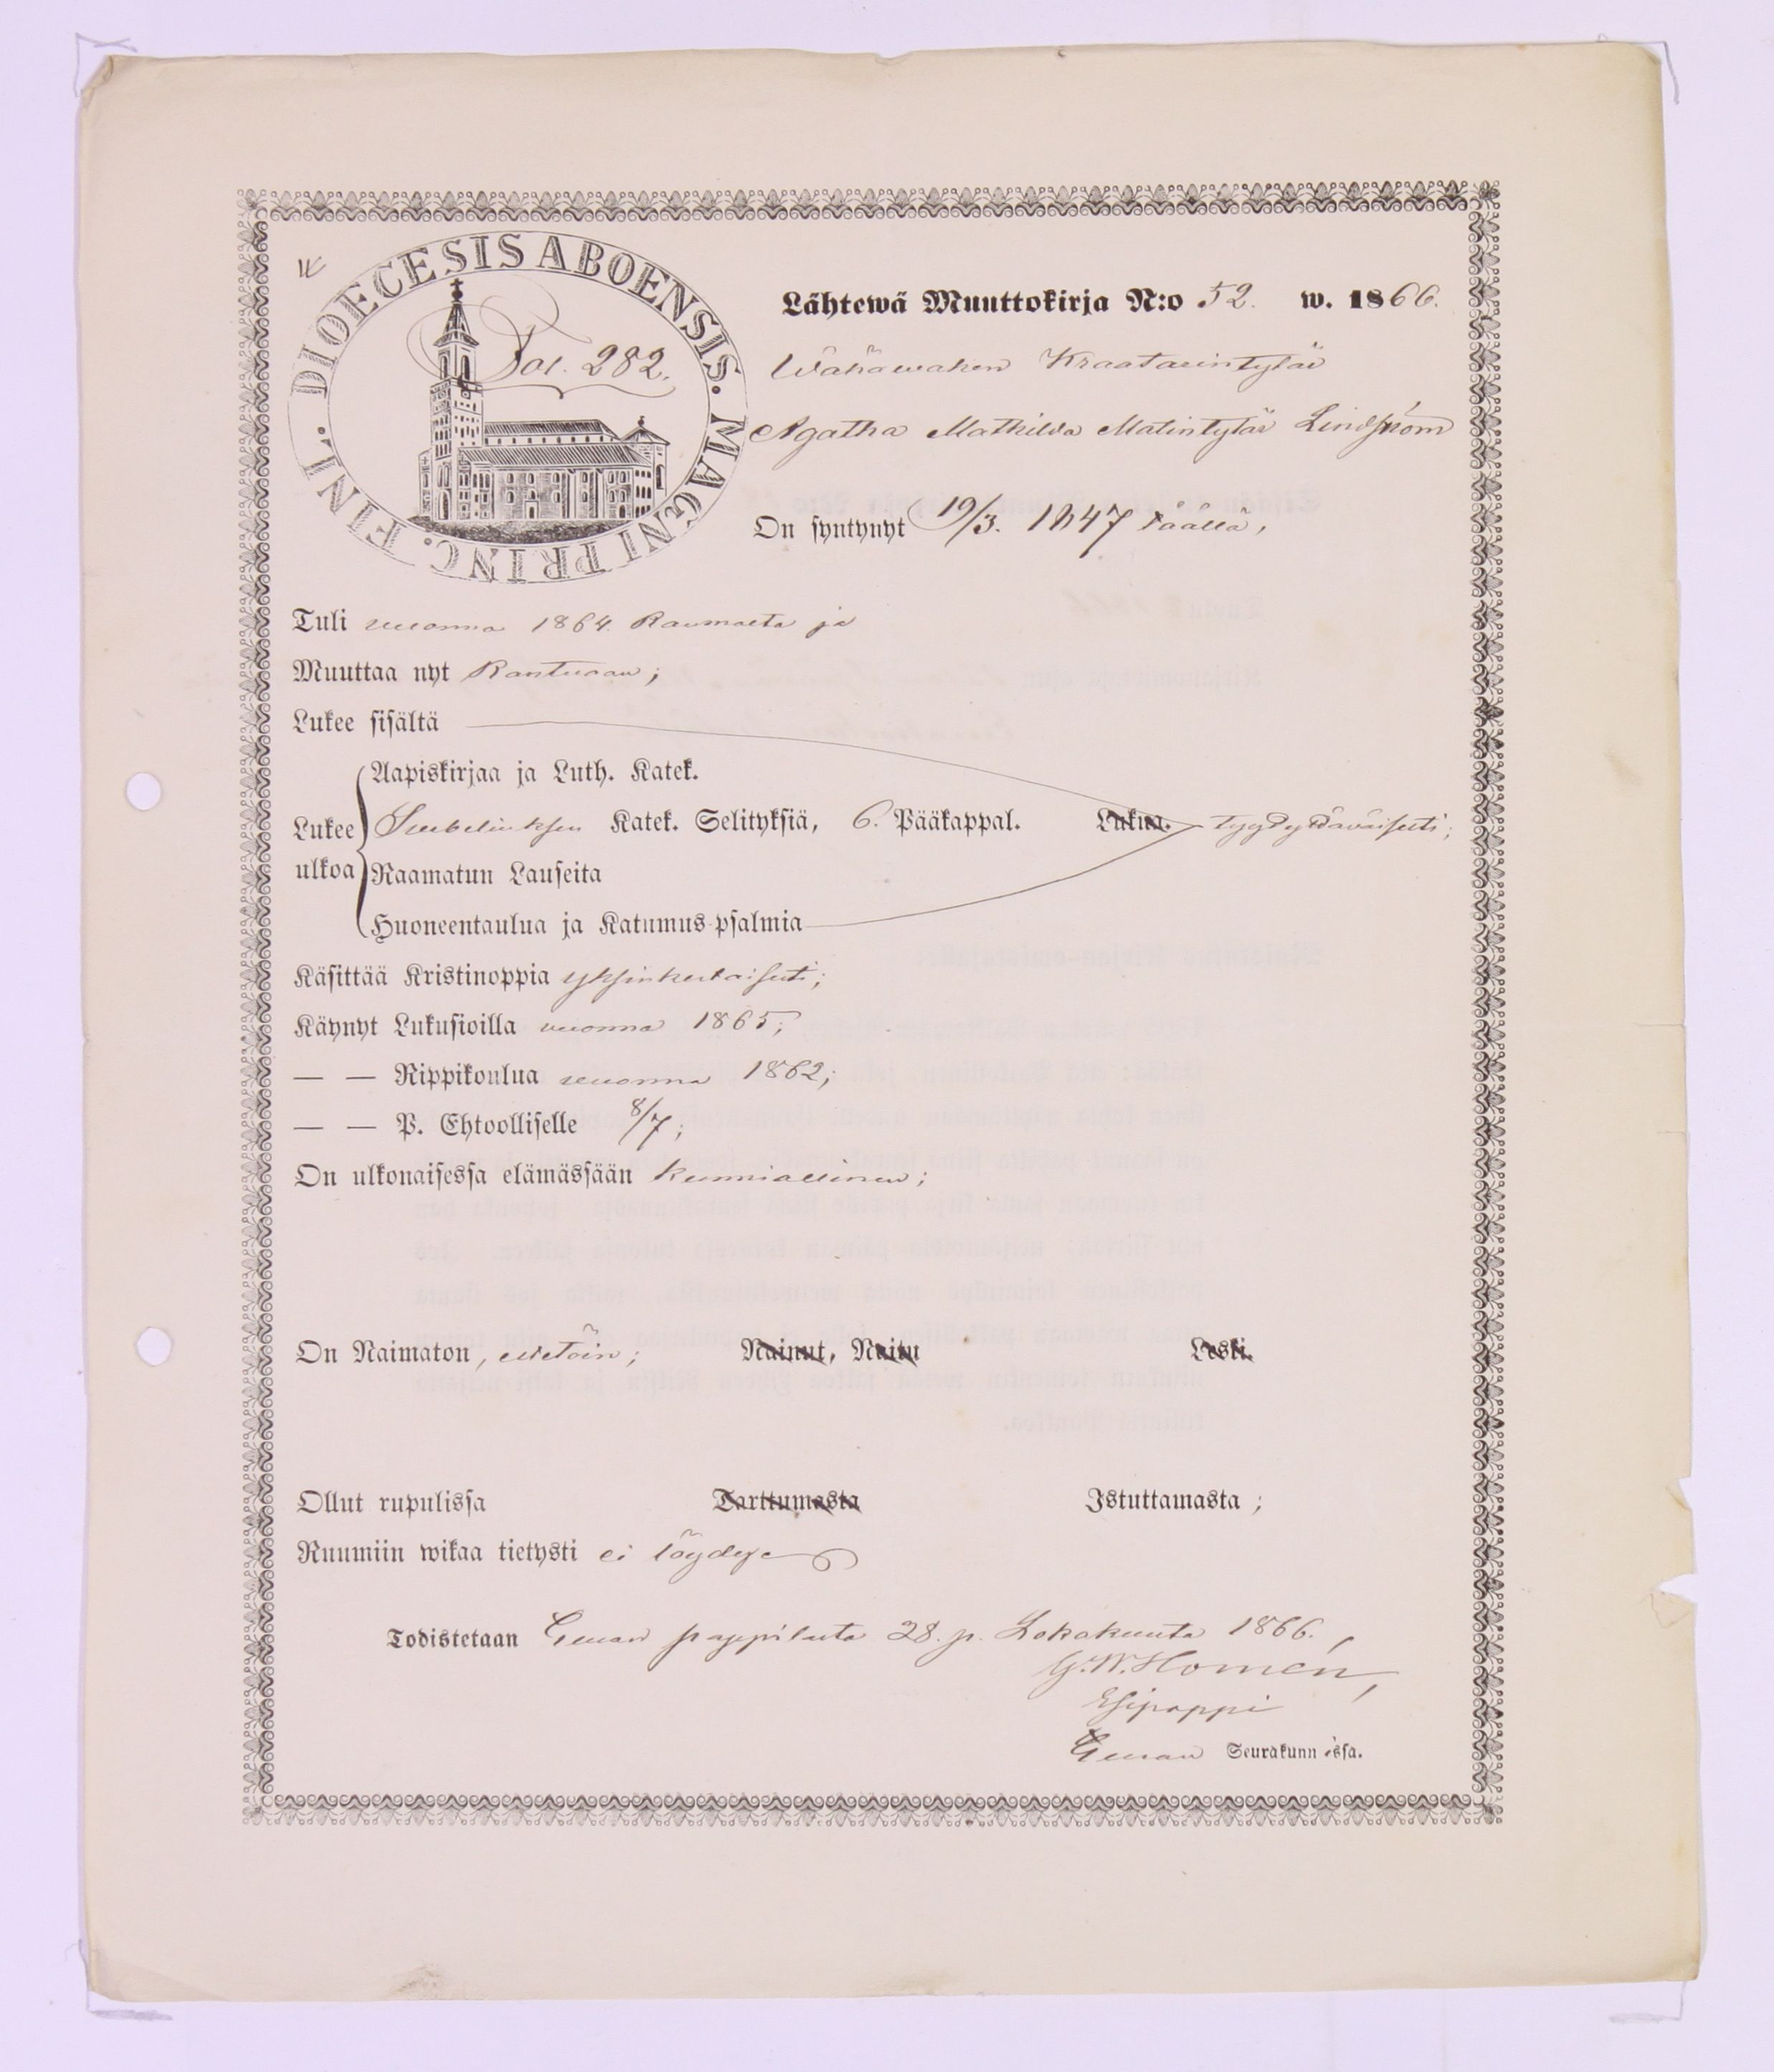 DIOECESIS ABOENSIS. MAGNI PRINC. FINL.
Fol. 282.
Lähtewä Muuttokirja N:o 52. w. 1866.
Wähäwahen Kraatarintytär
Agatha Mathilda Matintytär Lindström
On syntynyt 19/3. 1847 täällä,
Tuli vuonna 1864 Raumalta ja
Muuttaa nyt Rantuaan;
Lukee sisältä
Aapiskirjaa ja Luth. Katek.
Lukee Katek. Selityksiä, 6. Pääkappal. Lukua. tyydyttäväisesti;
ulkoa Raamatun Lauseita
Huoneentaulua ja Katumus-psalmia
Käsittää Kristinoppia yksinkertaisesti;
Käynyt Lukusioilla vuonna 1865;
— — Rippikoulua vuonna 1862;
— — P. Ehtoolliselle 8/7;
On ulkonaisessa elämässään kunniallinen;
On Naimaton, estetöin; Nainut, Naitu Leski.
Ollut rupulissa Tarttumasta Istuttamasta;
Ruumiin wikaa tietysti ei löydy
Todistetaan Euran pappilasta 28. p. Lokakuuta 1866.
G. W. Homén,
Esipappi
Euran Seurakunnissa.